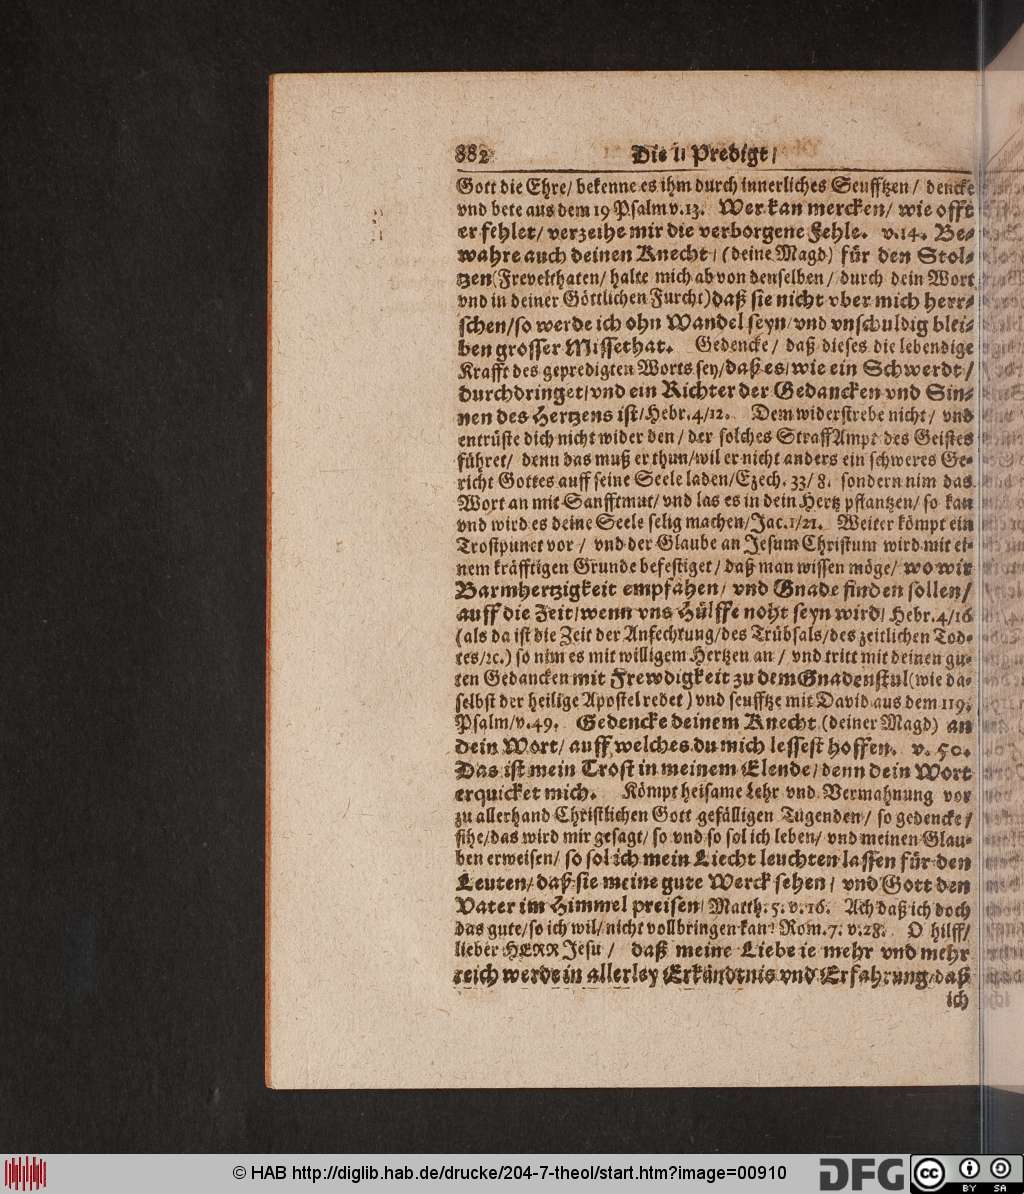 882 Die II Predigt/
Gott die Ehre/ bekenne es ihm durch innerliches Seufftzen/ dencke
vnd bete aus dem 19 Psalm v.13. Wer kan mercken/ wie offt
er fehlet/ verzeihe mir die verborgene Fehle. v.14. Be-
wahre auch deinen Knecht/ (deine Magd) für den Stol-
tzen (Frevelthaten/ halte mich ab von denselben/ durch dein Wort
vnd in deiner Göttlichen Furcht) daß sie nicht vber mich herr-
schen/ so werde ich ohn Wandel seyn/ vnd vnschuldig blei-
ben grosser Missethat. Gedencke/ daß dieses die lebendige
Krafft des gepredigten Worts sey/ daß es/ wie ein Schwerdt/
durchdringet/ vnd ein Richter der Gedancken vnd Sin-
nen des Hertzens ist/ Hebr. 4/12. Dem widerstrebe nicht/ vnd
entrüste dich nicht wider den/ der solches StraffAmpt des Geistes
führet/ denn das muß er thun/ wil er nicht anders ein schweres Ge-
richt Gottes auff seine Seele laden/ Ezech. 33/ 8. sondern nim das
Wort an mit Sanfftmut/ vnd las es in dein Hertz pflantzen/ so kan
vnd wird es deine Seele selig machen/ Jac. 1/21. Weiter kömpt ein
Trostpunct vor/ vnd der Glaube an Jesum Christum wird mit ei-
nem kräfftigen Grunde befestiget/ daß man wissen möge/ wo wir
Barmhertzigkeit empfahen/ vnd Gnade finden sollen/
auff die Zeit/ wenn vns Hülffe noht seyn wird/ Hebr. 4/16
(als da ist die Zeit der Anfechtung/ des Trübsals/ des zeitlichen Tod-
tes/ ꝛc.) so nim es mit willigem Hertzen an/ vnd tritt mit deinen gu-
ten Gedancken mit Frewdigkeit zu dem Gnadenstul (wie da-
selbst der heilige Apostel redet) vnd seufftze mit David aus dem 119.
Psalm/ v.49. Gedencke deinem Knecht (deiner Magd) an
dein Wort/ auff welches du mich lessest hoffen. v. 50.
Das ist mein Trost in meinem Elende/ denn dein Wort
erquicket mich. Kömpt heisame Lehr vnd Vermahnung vor
zu allerhand Christlichen Gott gefälligen Tugenden/ so gedencke/
sihe/ das wird mir gesagt/ so vnd so sol ich leben/ vnd meinen Glau-
ben erweisen/ so sol ich mein Liecht leuchten lassen für den
Leuten/ daß sie meine gute Werck sehen/ vnd Gott den
Vater im Himmel preisen/ Matth. 5. v. 16. Ach daß ich doch
das gute/ so ich wil/ nicht vollbringen kan! Rom. 7. v. 28. O hilff/
lieber HERR Jesu/ daß meine Liebe ie mehr vnd mehr
reich werde in allerley Erkändtnis vnd Erfahrung/ daß
ich
© HAB http://diglib.hab.de/drucke/204-7-theol/start.htm?image=00910
DFG
cc
BY SA